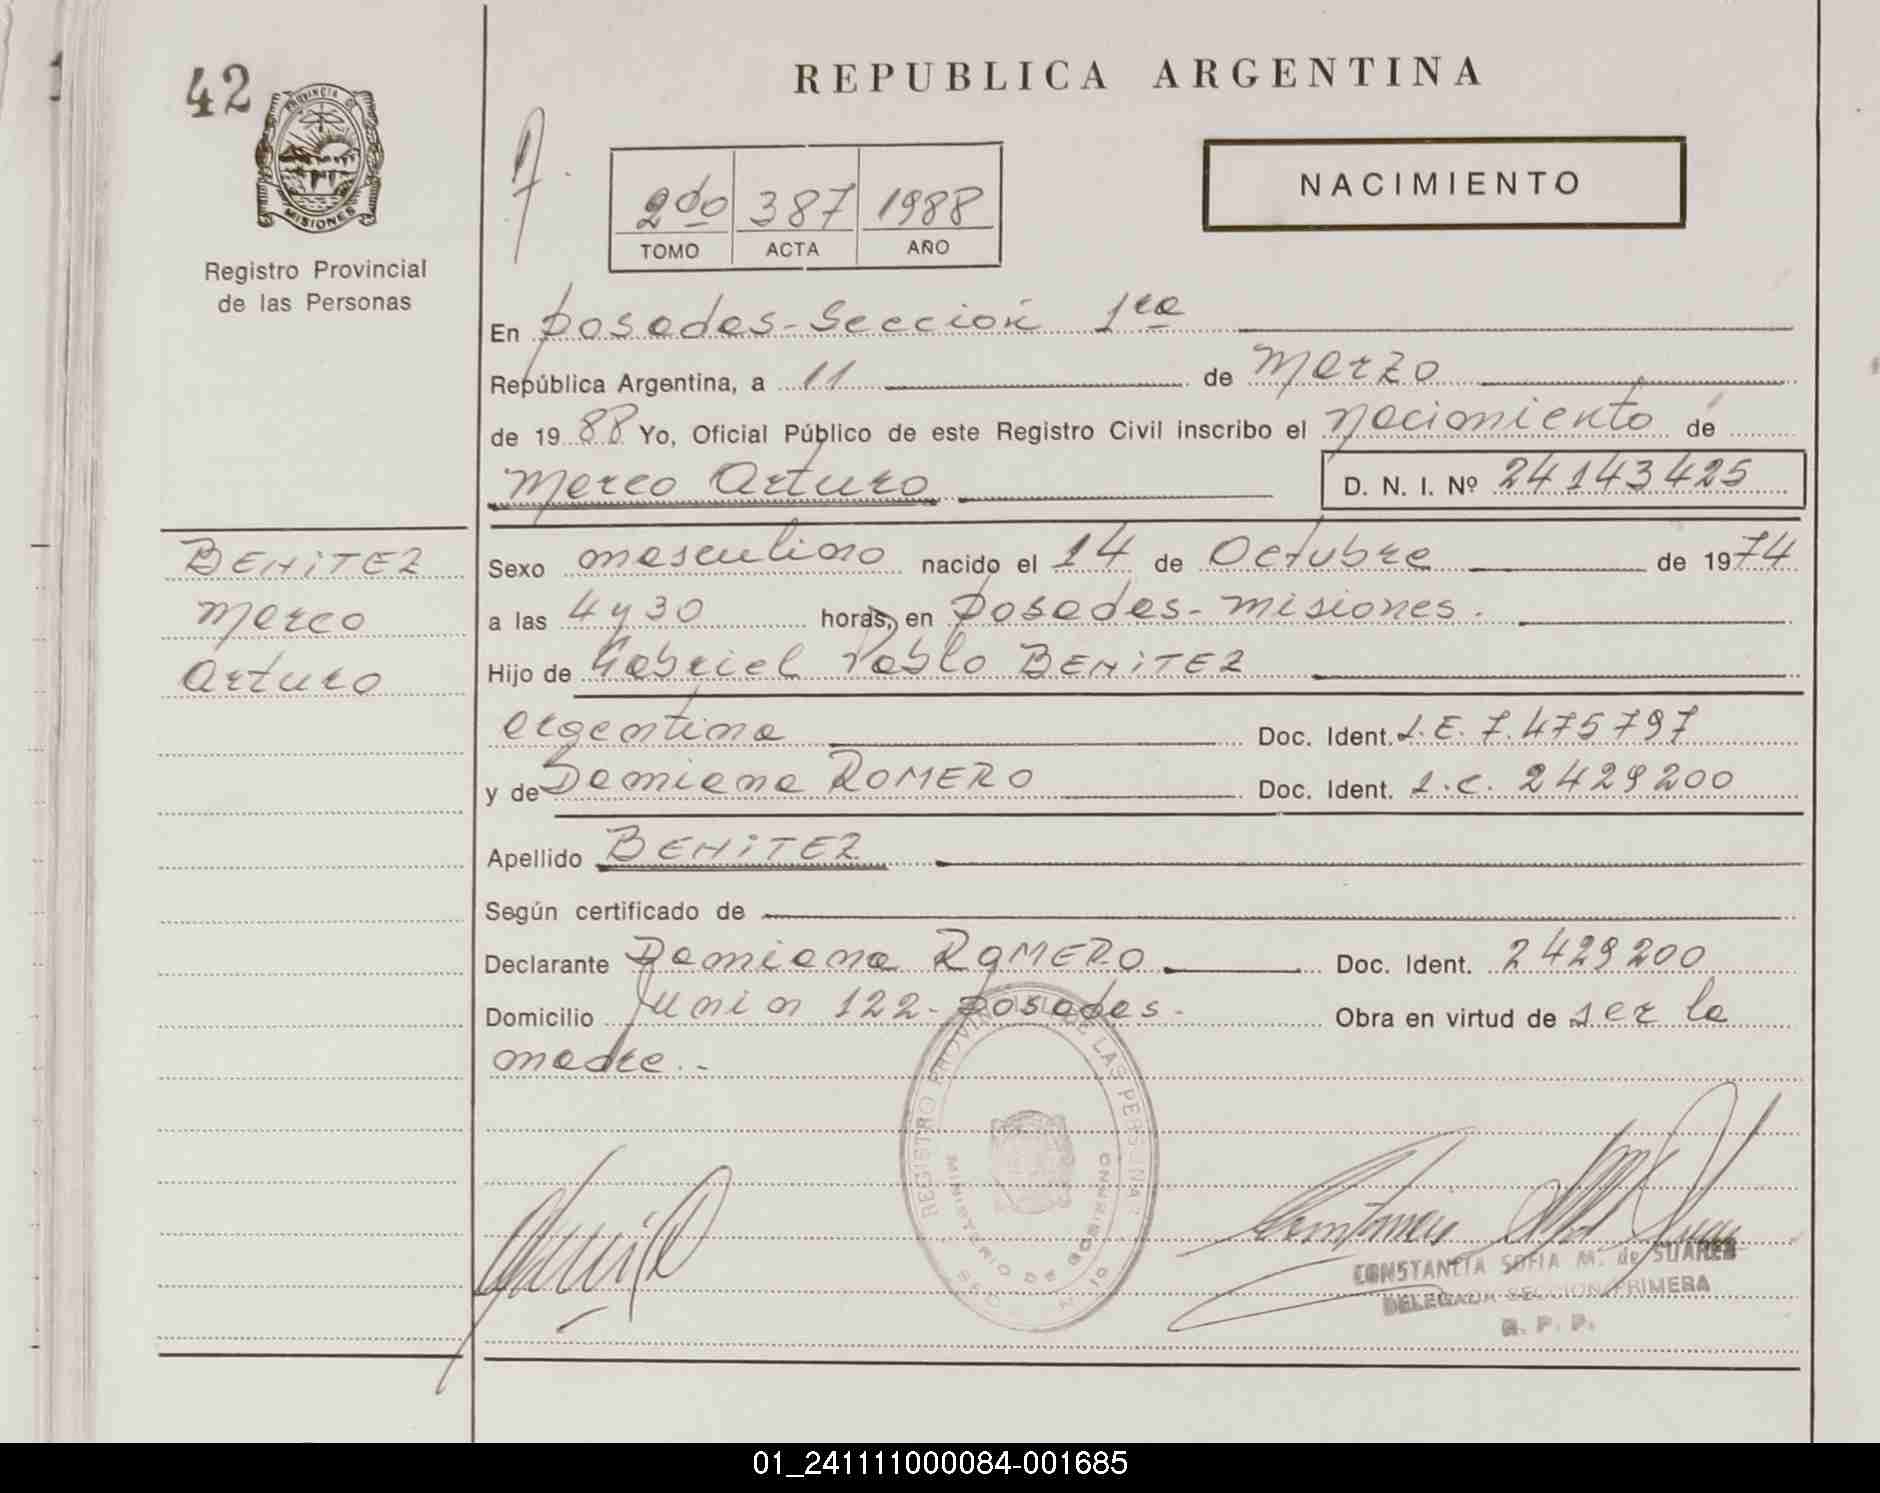 42
PROVINCIA DE
MISIONES
Registro Provincial
de las Personas
REPUBLICA ARGENTINA
2do 387 1988
TOMO ACTA AÑO
NACIMIENTO
En posadas - Sección 1ra
República Argentina, a 11 de marzo
de 1988 Yo, Oficial Público de este Registro Civil inscribo el nacimiento de
marco Arturo D. N. I. Nº 24143425
BENiTEZ
marco
Arturo
Sexo masculino nacido el 14 de Octubre de 1974
a las 4 y 30 horas, en posadas - misiones.
Hijo de Gabriel Pablo BENiTEZ
argentina Doc. Ident. L.E. 7.475797
y de Damiana ROMERO Doc. Ident. L.C. 2429200
Apellido BENiTEZ
Según certificado de
Declarante Damiana ROMERO Doc. Ident. 2429200
Domicilio Junin 122 - posadas - Obra en virtud de ser la
madre. -
REGISTRO PROVINCIAL DE LAS PERSONAS
MINISTERIO DE GOBIERNO
CONSTANCIA SOFIA M. de SUAREZ
DELEGADA SECCION PRIMERA
R. P. P.
01_241111000084-001685